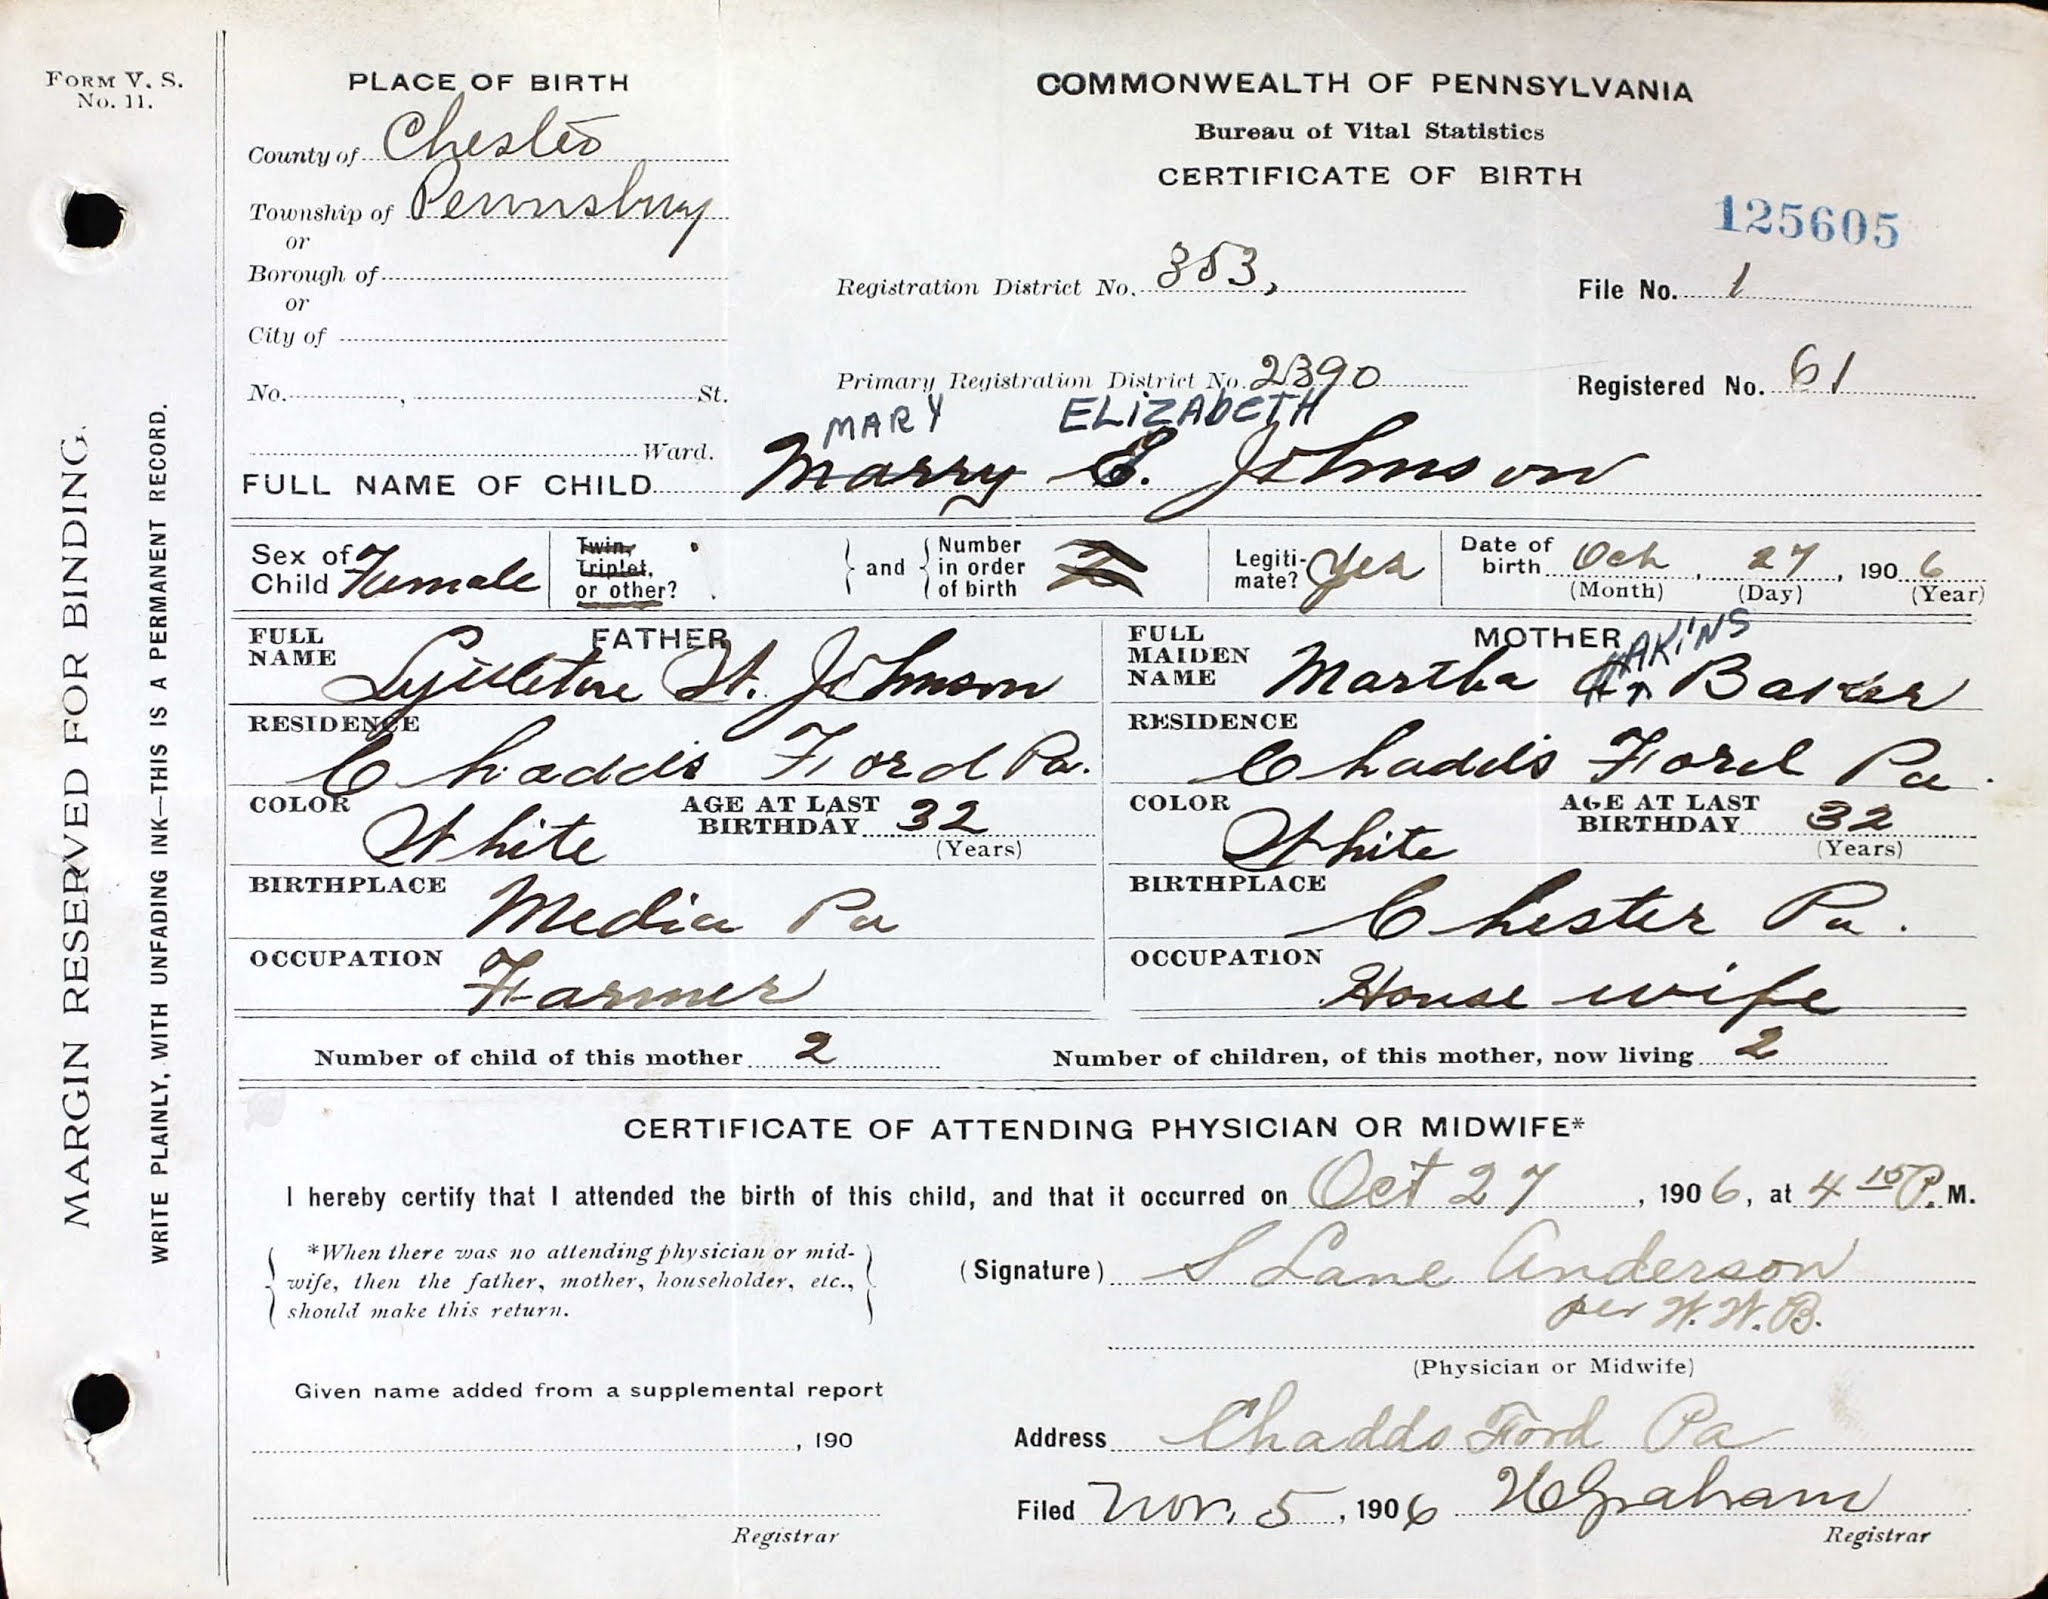 FORM V. S.
No. 11.
MARGIN RESERVED FOR BINDING.
WRITE PLAINLY, WITH UNFADING INK—THIS IS A PERMANENT RECORD.
PLACE OF BIRTH
County of Chester
Township of Pennsbury
or
Borough of
or
City of
No. , St.
Ward.
COMMONWEALTH OF PENNSYLVANIA
Bureau of Vital Statistics
CERTIFICATE OF BIRTH
125605
Registration District No. 353, File No. 1
Primary Registration District No. 2390 Registered No. 61
MARY ELIZABETH
FULL NAME OF CHILD Marry E. Johnson
Sex of Child Female Twin, Triplet, or other? and Number in order of birth 2 Legitimate? Yes Date of birth Oct, 27, 1906
(Month) (Day) (Year)
FATHER
FULL NAME Lyttleton W. Johnson
RESIDENCE
Chadds Ford Pa.
COLOR White AGE AT LAST BIRTHDAY 32
(Years)
BIRTHPLACE
Media Pa
OCCUPATION
Farmer
MOTHER
HAKINS
FULL MAIDEN NAME Martha H. Baker
RESIDENCE
Chadds Ford Pa.
COLOR White AGE AT LAST BIRTHDAY 32
(Years)
BIRTHPLACE
Chester Pa.
OCCUPATION
House wife
Number of child of this mother 2 Number of children, of this mother, now living 2
CERTIFICATE OF ATTENDING PHYSICIAN OR MIDWIFE*
I hereby certify that I attended the birth of this child, and that it occurred on Oct 27, 1906, at 4 15 P. M.
*When there was no attending physician or mid-
wife, then the father, mother, householder, etc.,
should make this return.
(Signature) S Lane Anderson
per W. W. B.
(Physician or Midwife)
Given name added from a supplemental report
, 190
Registrar
Address Chadds Ford Pa
Filed Nov. 5, 1906 Graham
Registrar